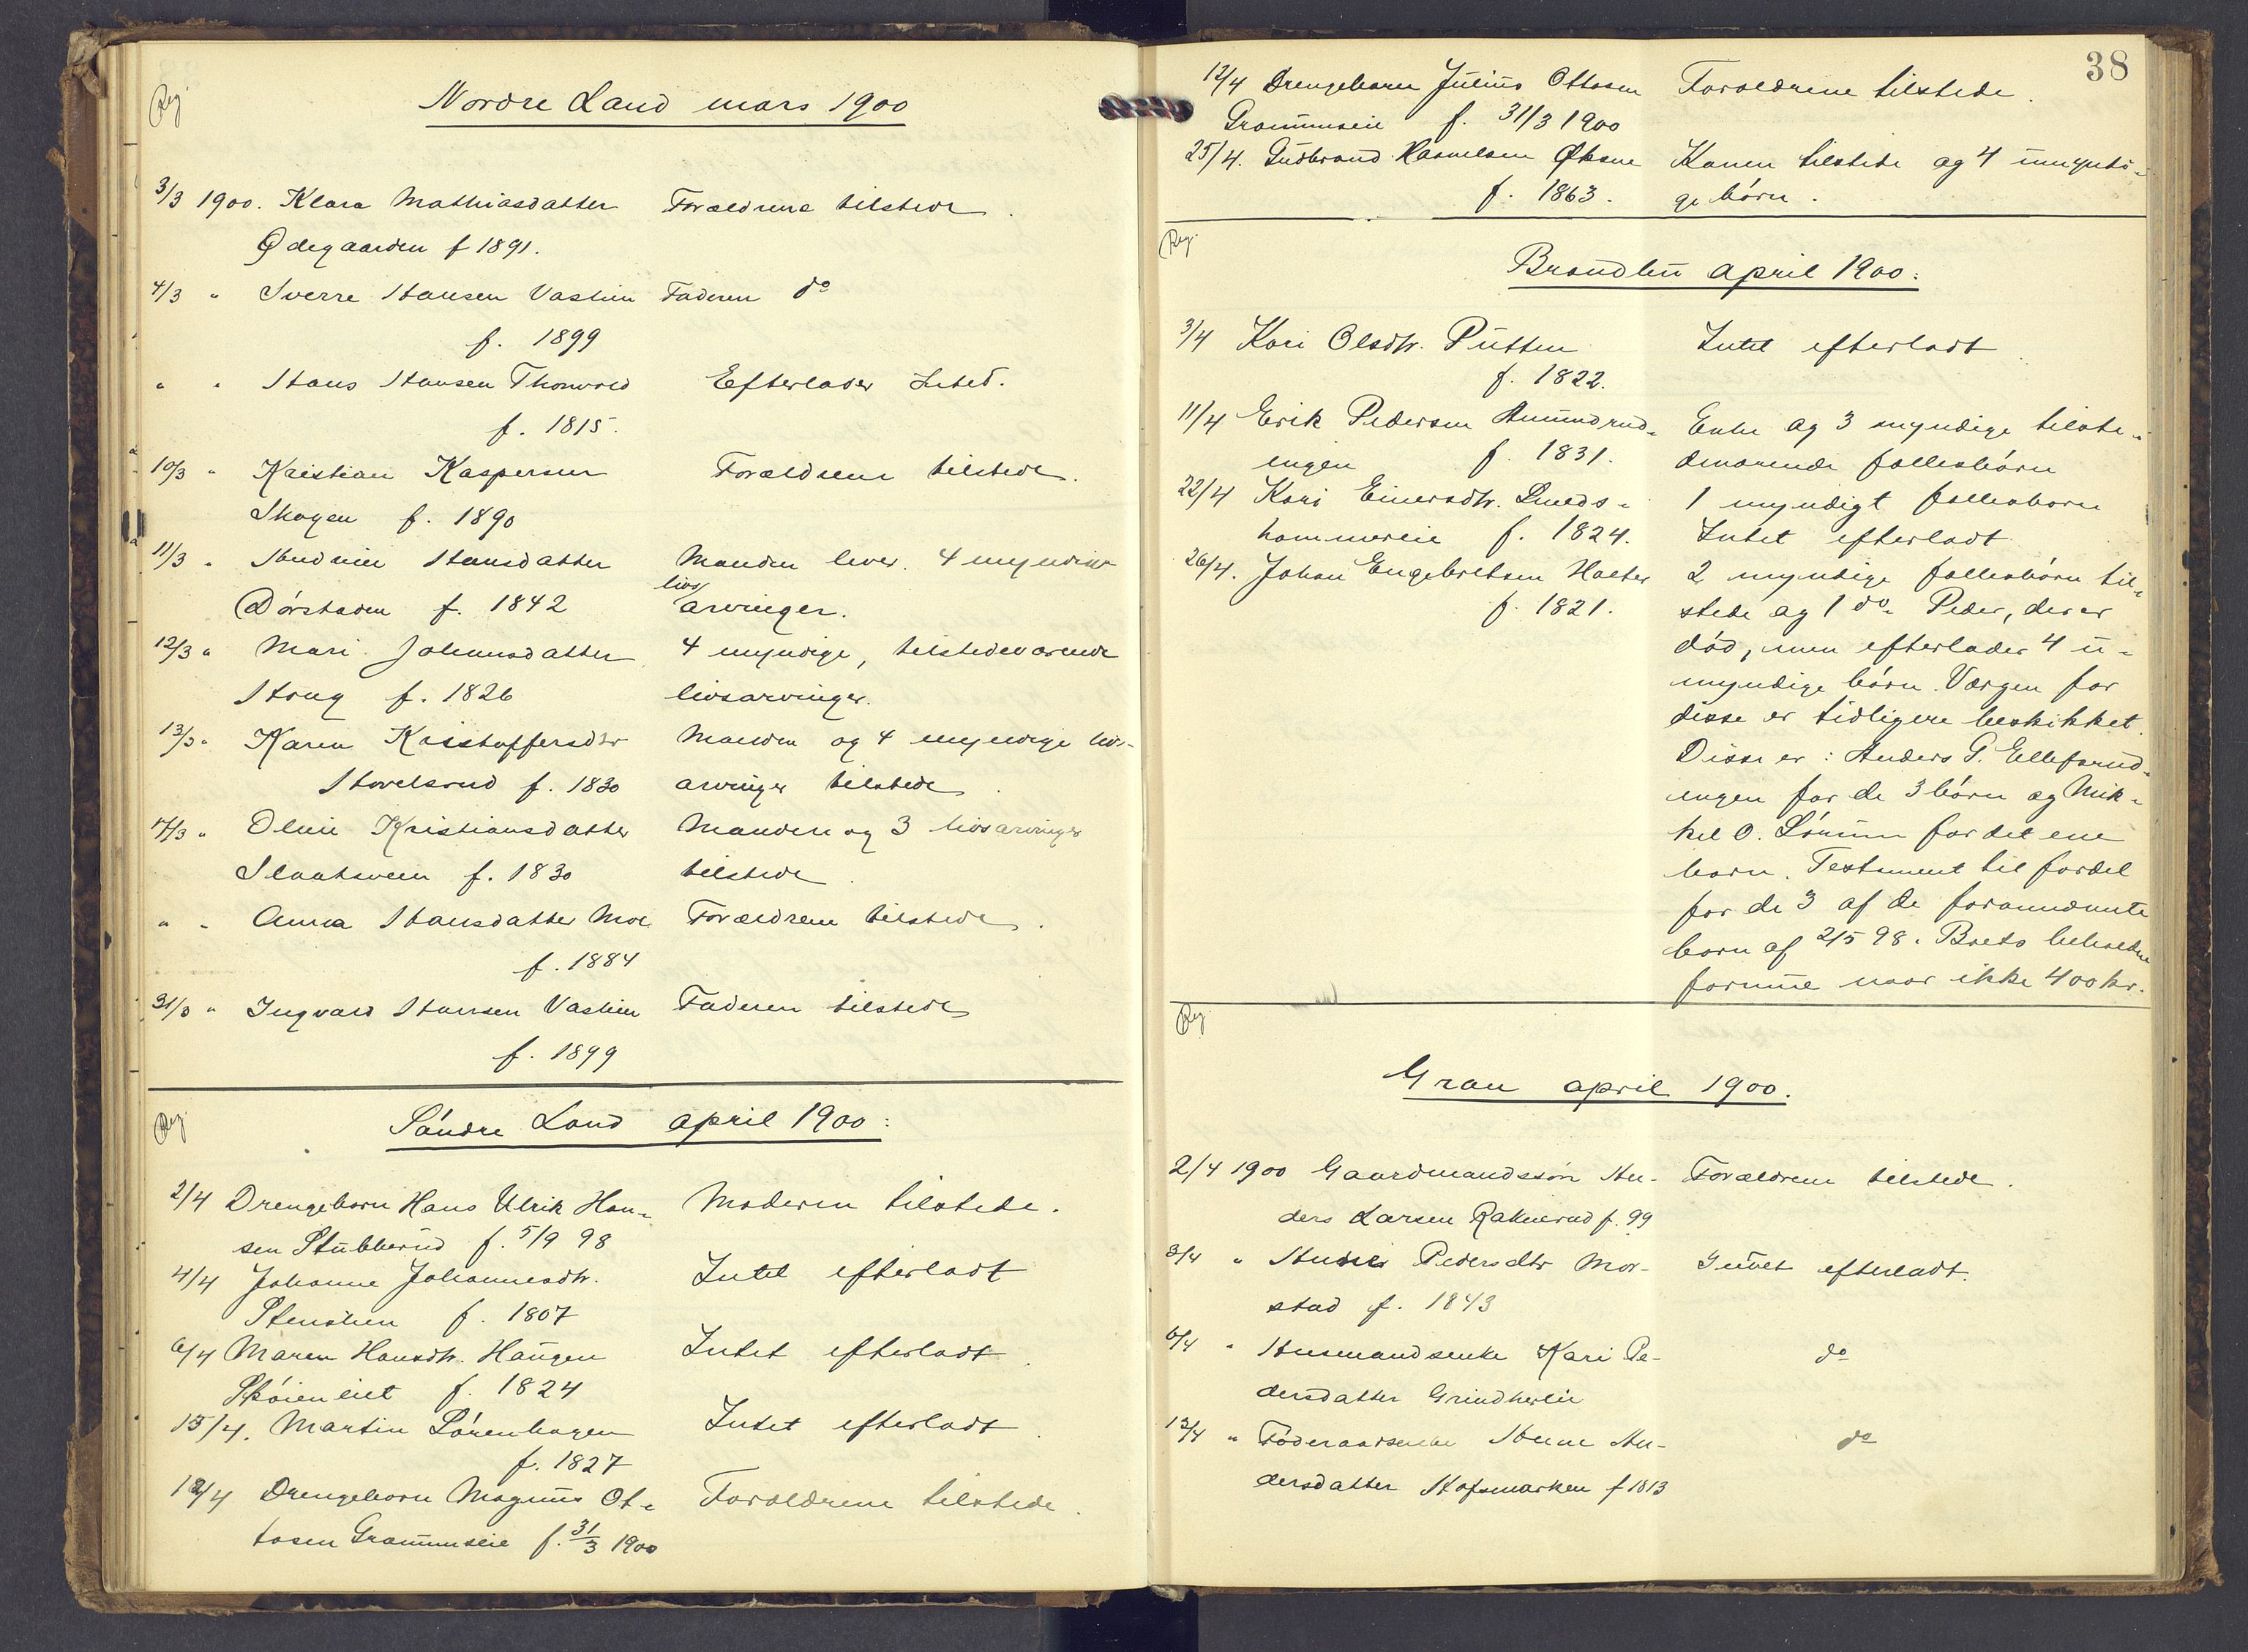 Reg.
Nordre Land mars 1900
3/3 1900. Klara Mathiasdatter Forældrene tilstede.
Ødegaarden f 1891.
4/3 " Sverre Hansen Vaslien Faderen do
f. 1899
" " Hans Hansen Thonvold Efterlader Intet.
f. 1815.
10/3 " Kristian Kaspersen Forældrene tilstede.
Skogen f. 1890
11/3 " Hansdatter Manden lever. 4 myndige
livs
f. 1842 arvinger.
12/3 " Mari Johansdatter 4 myndige, tilstedeværende
f. 1826 livsarvinger.
13/3 " Karen Kristoffersdtr Manden og 4 myndige livs-
Hovelsrud f. 1830 arvinger tilstede.
14/3 " Oline Kristiansdatter Manden og 3 livsarvinger
f. 1830 tilstede.
" " Anna Hansdatter Moe Forældrene tilstede.
f. 1884
31/3 " Ingvald Hansen Vaslien Faderen tilstede
f. 1899
Reg.
Søndre Land april 1900:
2/4 Drengebarn Hans Ulrik Han-
sen Stubberud f. 5/9 98 Moderen tilstede.
4/4 Johanne Johannesdtr. Intet efterladt
f. 1807
6/4 Maren Hansdtr. Haugen Intet efterladt.
Skøieneiet f. 1824
15/4. Martin Sørenhagen Intet efterladt.
f. 1827
12/4 Drengebarn Magnus Ot- Forældrene tilstede.
tosen Grammseie f. 31/3 1900
38
12/4 Drengebarn Julius Ottosen Forældrene tilstede.
Grammseie f. 31/3 1900
25/4. Gudbrand Øksne Konen tilstede og 4 umyndi-
f. 1863. ge børn.
Reg.
Brandbu april 1900:
3/4 Kari Olsdtr. Putten Intet efterladt.
f. 1822.
11/4 Erik Pedersen Amundrud- Enke og 3 myndige tilste-
engen f. 1831. deværende fællesbørn
22/4 Kari Einersdtr. Smeds- 1 myndigt fællesbarn
hammereie f. 1824. Intet efterladt.
26/4. Johan Engebretsen Halter 2 myndige fællesbørn til-
f. 1821. stede og 1 do. Peder, der er
død, men efterlader 4 u-
myndige børn. Værgen for
disse er tidligere beskikket.
Disse er: Anders P. Ellefsrud-
engen for de 3 børn og Mik-
kel O. Lønum for det ene
barn. Testament til fordel
for de 3 af de forannævnte
børn af 2/5 98. Boets beholdne
formue naar ikke 400 kr.
Reg.
Gran april 1900.
2/4 1900 Gaardmandssøn An- Forældrene tilstede.
ders Larsen Raknerud f. 99
3/4 " Pedersdtr Mor- Intet efterladt.
stad f. 1843
6/4 " Husmandsenke Kari Pe- do
dersdatter Grindhereie
13/4 " Føderaadsenke Anne An- do
dersdatter Hofsmarken f 1813